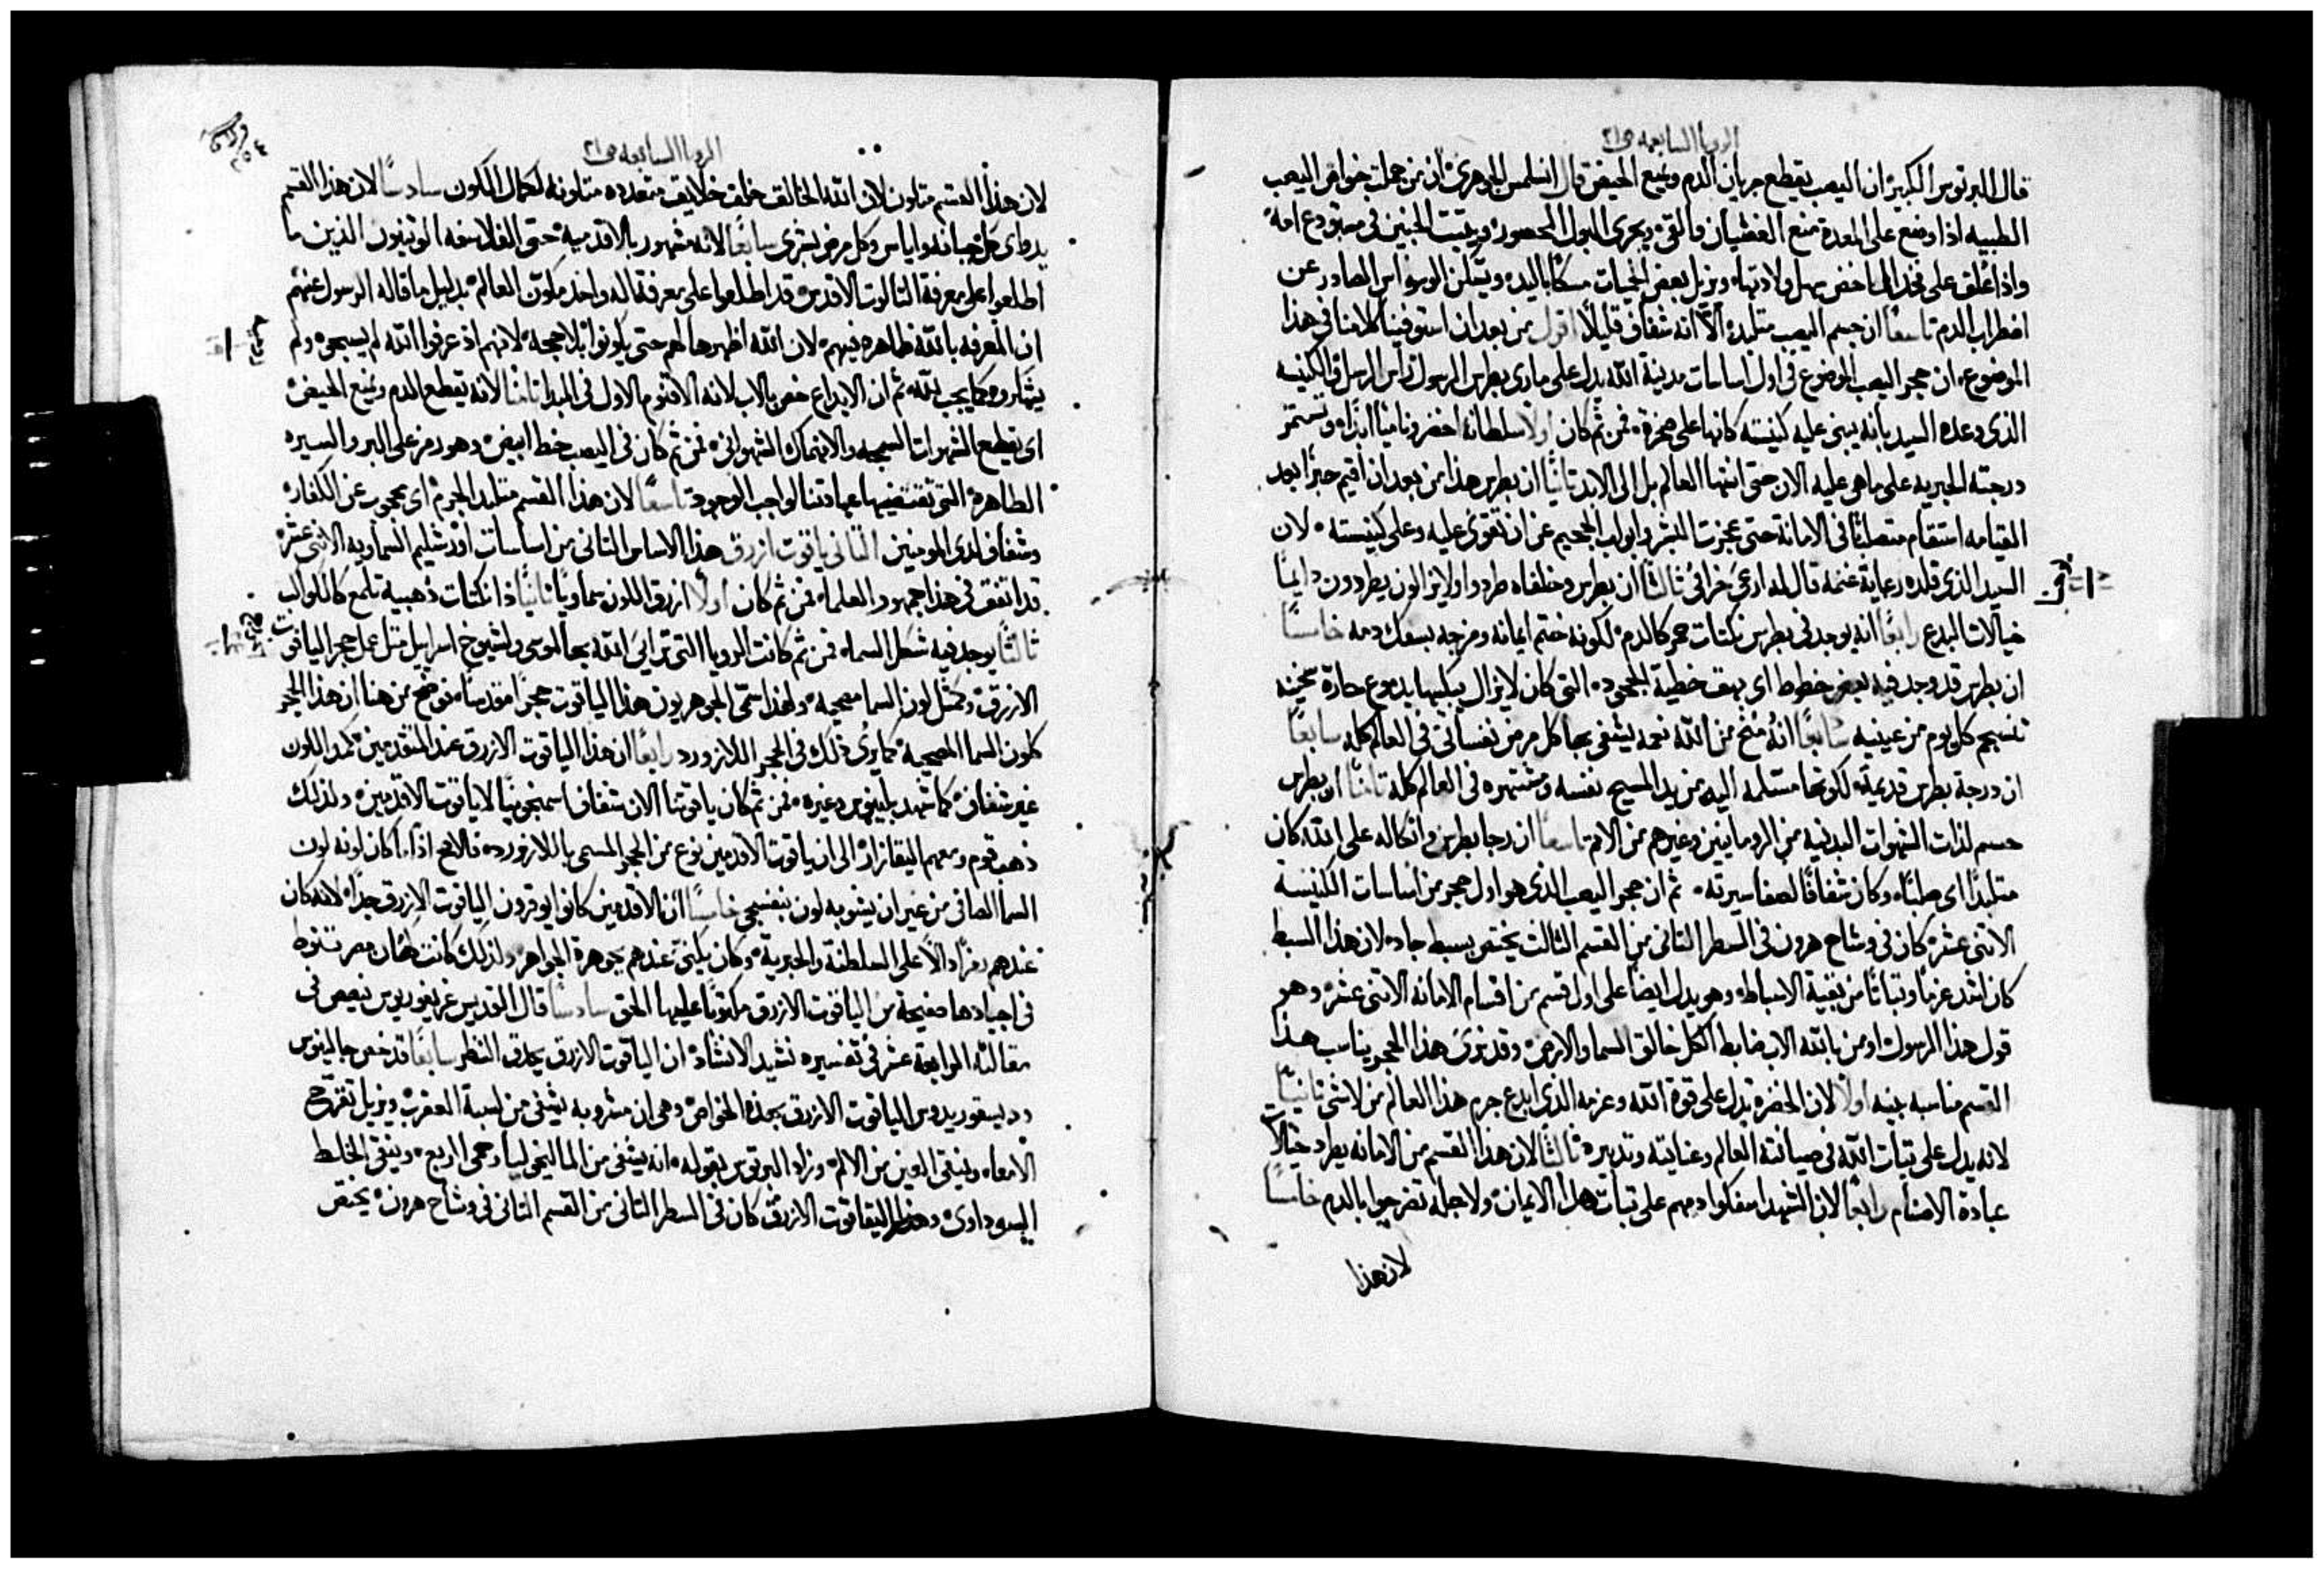 الرويا السابعه ص٢١
قال البرتوس الكبير ان اليصب يقطع جريان الدم ويمنع الحيض قال انسلمس الجوهرى ان من جملت خواص اليصب
الطبيه اذا وضع على المعدة منع الغشيان والقى ويجرى البول المحصور ويثبت الجنين فى مستودع امه
واذا عُلق على فخد الماخض يسهل ولادتها ويزيل بعض الحميات مسكًا باليد ويسكن الوسواس الصادر عن
اضطراب الدم تاسعًا ان جسم اليصب متلبد الّا انه شفاف قليلًا اقول من بعد ان استوفينا كلامنا فى هذا
الموضوع ان حجر اليصب الموضوع فى اول اساسات مدينة الله يدل على مارى بطرس الرسول راس الرسل والكنيسه
الذى وعده السيد بانه يبنى عليه كنيسته كانها على صخرة فمن ثم كان اولًا سلطانه اخضر وناميًا ابدًا وتستمر
درجته الحبريه على ما هى عليه الان حتى انتها العالم بل الى الابد ثانيًا ان بطرس هذا من بعد ان اقيم حبرًا بعد
القيامه استقام متصلبًا فى الامانة حتى عجزت البشر وابواب الجحيم عن ان تقوى عليه وعلى كنيسته لان
السيد الذى قلده رعاية غنمه قال له ارعى خرافى ثالثًا ان بطرس وخلفاه طردوا ولا يزالون يطردون دايمًا
خيالات البدع رابعًا انه يوجد فى بطرس نكتات حمر كالدم لكونه ختم ايمانه ومزجه بسفك دمه خامسًا
ان بطرس قد وجد فيه بعض خطوط اى بهق خطية الجحود التى كان لا يزال يبكيها بدموع حارة سخينه
تنسجم كل يوم من عينيه سابعًا انه مُنح من الله نعمه يشفى بها كل مرض نفسانى فى العالم كله سابعًا
ان درجة بطرس قديمة لكونها مستلمه اليه من يد المسيح نفسه ومشتهره فى العالم كله ثامنًا ان بطرس
حسم لذات الشهوات البدنيه من الرومانيين وغيرهم من الامم تاسعًا ان رجا بطرس واتكاله على الله كان
متلبدًا اى صلبًا وكان شفافًا لصفا سيرته ثم ان حجر اليصب الذى هو اول حجر من اساسات الكنيسة
الاثنى عشر كان فى وشاح هرون فى السطر الثانى من القسم الثالث يختص بسبط جاد لان هذا السبط
كان اشد عزمًا وثباتًا من بقية الاسباط وهو يدل ايضًا على اول قسم من اقسام الامانه الاثنى عشر وهو
قول هذا الرسول اومن بالله الاب ضابط الكل خالق السما والارض وقد نرى هذا الحجر يناسب هذا
القسم مناسبه بينه اولًا لان الخضرة تدل على قوة الله وعزمه الذى ابدع جرم هذا العالم من لاشى ثانيًا
لانه يدل على ثبات الله فى صيانة العالم وعنايته وتدبيره ثالثًا لان هذا القسم من الامانه يطرد خيالات
عبادة الاصنام رابعًا لان الشهدا سفكوا دمهم على ثبات هذا الايمان ولاجله تضرجوا بالدم خامسًا
لان هذا
الرويا السابعه ص٢١
لان هذا القسم متلون لان الله الخالق خلق خلايق متعدده متلونه لكمال الكون سادسًا لان هذا القسم
يداوى كل جبانه واياس وكل مرض بشرى سابعًا لانه مشهور بالاقدميه حتى الفلاسفه الوثنيون الذين ما
اطلعوا على معرفة الثالوث الاقدس قد اطلعوا على معرفة اله واحد مكون العالم بدليل ما قاله الرسول عنهم
ان المعرفه بالله ظاهره فيهم لان الله اظهرها لهم حتى يكونوا بلا حجة لانهم اذ عرفوا الله لم يسبحوه ولم
يشكروه كما يجب لله ثم ان الابداع خص بالاب لانه الاقنوم الاول فى المبدا ثامنًا لانه يقطع الدم ويمنع الحيض
اى يقطع الشهوات السمجه والانهماك الشهوانى فمن ثم كان فى اليصب خط ابيض وهو رمز على البر والسيره
الطاهرة التى تقتضيها عبادتنا لواجب الوجود تاسعًا لان هذا القسم متلبد الجرم اى محجوب عن الكفار
وشفاف لدى المومنين الثانى ياقوت ازرق هذا الاساس الثانى من اساسات اورشليم السماويه الاثنى عشر
قد اتفق فى هذا جمهور العلماء فمن ثم كان اولًا ازرق اللون سماويًا ثانيًا ذا نكتات ذهبية تلمع كالكواكب
ثالثًا يوجد فيه شكل السماء فمن ثم كانت الرويا التى تراى الله بها لموسى ولشيوخ اسراييل مثل عمل حجر الياقوت
الازرق وكمثل لون السما مصحيه ولهذا سمّى الجوهريون هذا الياقوت حجرًا مقدسًا فوضح من هنا ان هذا الحجر
كلون السما المصحية كما يرى ذلك فى الحجر اللازورد رابعًا ان هذا الياقوت الازرق عند المتقدمين كمد اللون
غير شفاف كما شهد بلينوس وغيره فمن ثم كان ياقوتنا الان شفاف اسمنجونيًا لا ياقوت الاقدمين ولذلك
ذهب قوم ومعهم اليقازار الى ان ياقوت الاقدمين نوع من الحجر المسمى باللازورد فالاصح اذًا كان لونه لون
السما الصافى من غير ان يشوبه لون بنفسجى خامسًا ان الاقدمين كانوا يوقرون الياقوت الازرق جدًا لانه كان
عندهم رمزًا دالًا على السلطنة والحبرية وكان يكنى عندهم بجوهرة الجواهر ولذلك كانت كهان مصر تنوط
فى اجيادها صفيحة من الياقوت الازرق مكتوبًا عليها الحق سادسًا قال القديس غريغوريوس نيصص فى
مقالته الرابعة عشر فى تفسيره نشيد الانشاد ان الياقوت الازرق يحدق النظر سابعًا قد خص جالينوس
وديسقوريدوس الياقوت الازرق بهذه الخواص وهى ان مشروبه يشفى من لسبة العقرب ويزيل تقرح
الامعاء وينقى العين من الالم وزاد البرتوس بقوله انه يشفى من الماليخوليا وحمى الربع وينقى الخلط
السوداوى وهذا الياقوت الازرق كان فى السطر الثانى من القسم الثانى فى وشاح هرون يختص